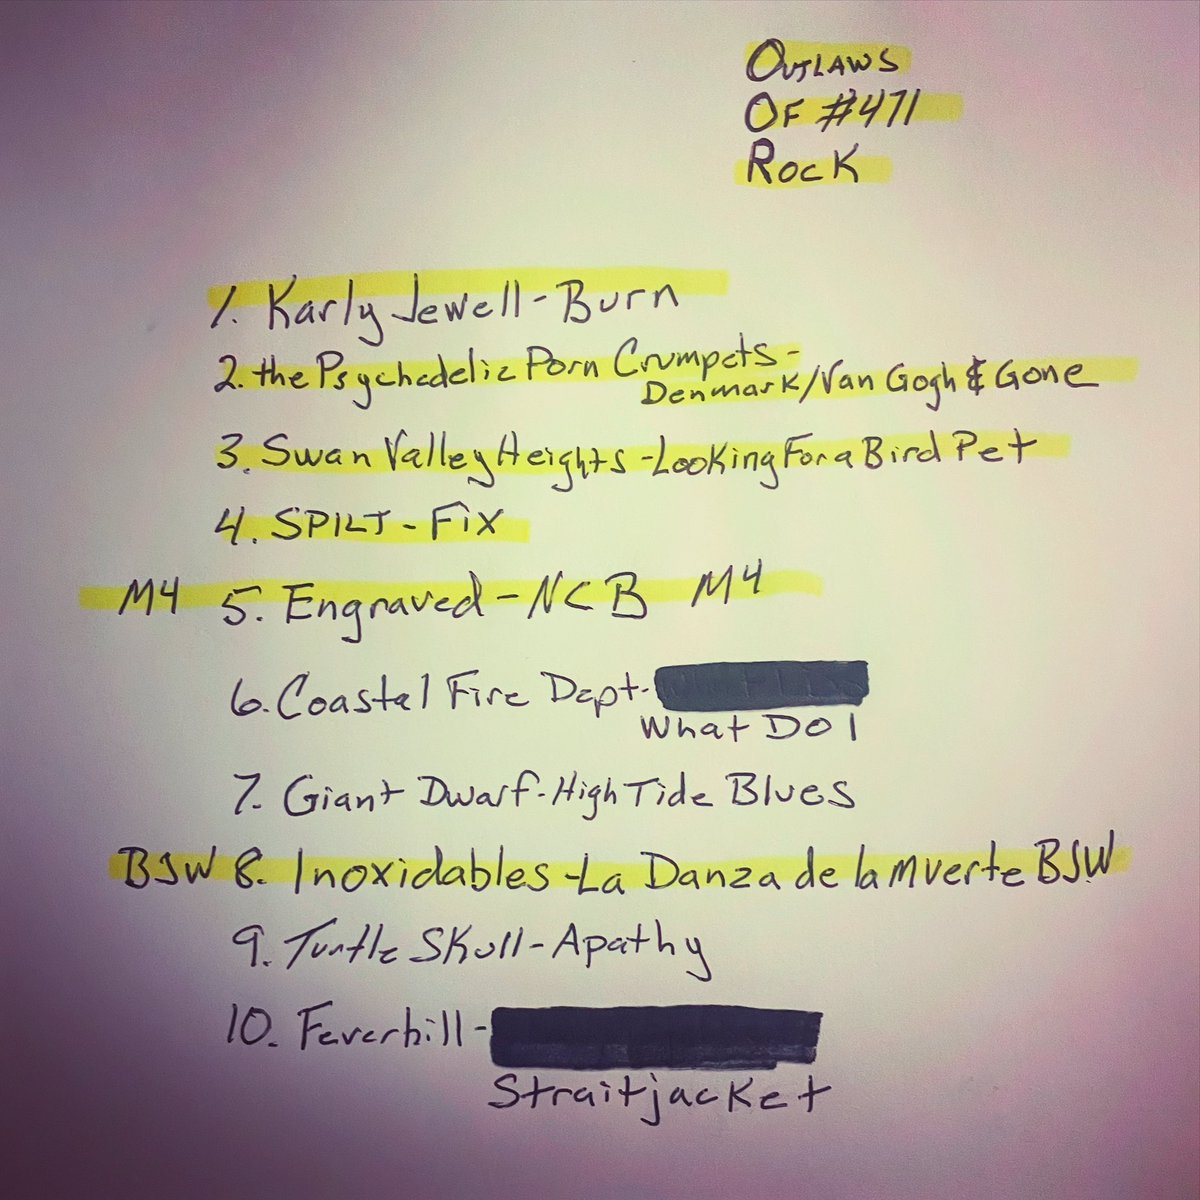 Outlaws
Of #471
Rock
1. Karly Jewell - Burn
2. the Psychedelic Porn Crumpets -
Denmark/Van Gogh & Gone
3. Swan Valley Heights - Looking For a Bird Pet
4. SPILT - Fix
M4 5. Engraved - NCB M4
6. Coastal Fire Dept. -
What Do I
7. Giant Dwarf - High Tide Blues
BSW 8. Inoxidables - La Danza de la Muerte BSW
9. Turtle Skull - Apathy
10. Feverhill -
Straitjacket